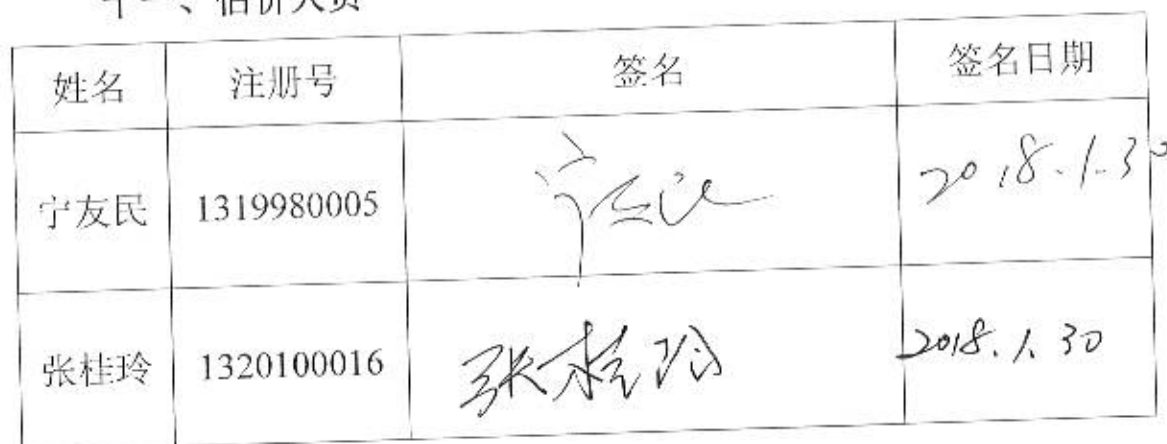 十一、估价人员
姓名 注册号 签名 签名日期
宁友民 1319980005 宁友民 2018.1.30
张桂玲 1320100016 张桂玲 2018.1.30